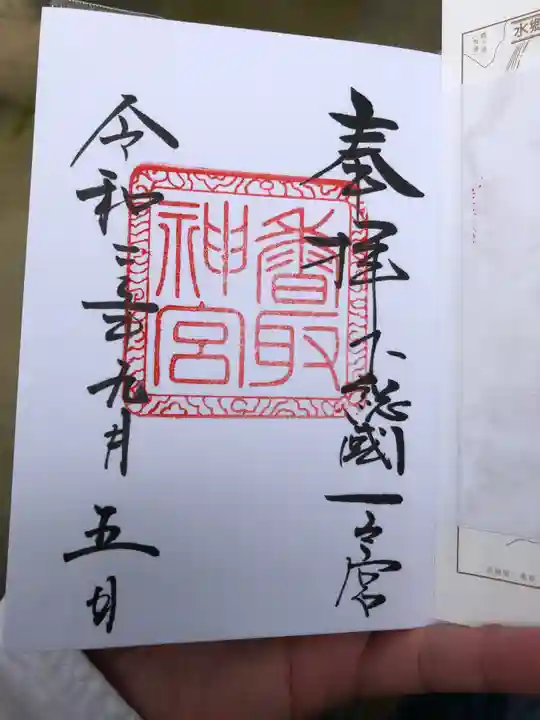 奉拝 下総國一之宮
香取
神宮
令和三年九月五日
水郷